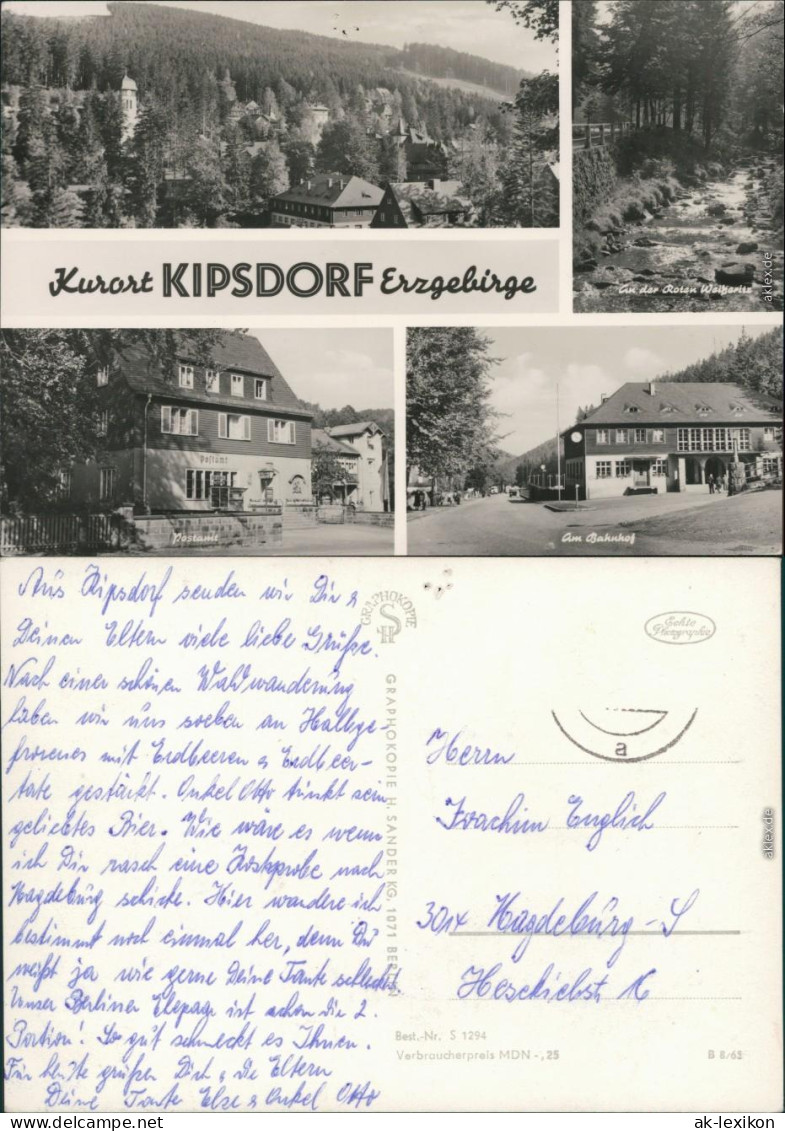 Kurort KIPSDORF Erzgebirge
An der Roten Weißeritz
Postamt
Postamt
Am Bahnhof
aklex.de
Aus Kipsdorf senden wir Dir &
Deinen Eltern viele liebe Grüße.
Nach einer schönen Waldwanderung
haben wir uns soeben an Halbge-
frorenes mit Erdbeeren & Erdbeer-
torte gestärkt. Onkel Otto trinkt sein
geliebtes Bier. Wie wäre es wenn
ich Dir rasch eine Kostprobe nach
Magdeburg schicke. Hier wandere ich
bestimmt noch einmal her, denn Du
weißt ja wie gerne Deine Tante schleckt
Unser Berliner Ehepaar ist schon die 2.
Portion! So gut schmeckt es Ihnen.
Für heute grüßen Dich & die Eltern
Deine Tante Else & Onkel Otto
GRAPHOKOPIE
SH
GRAPHOKOPIE H. SANDER KG, 1071 BERLIN
Echte
Photographie
a
Herrn
Joachim Englich
3014 Magdeburg-S
Best.-Nr. S 1294
Verbraucherpreis MDN -,25
B 8/65
aklex.de
www.ansichtskarten-lexikon.de
ak-lexikon